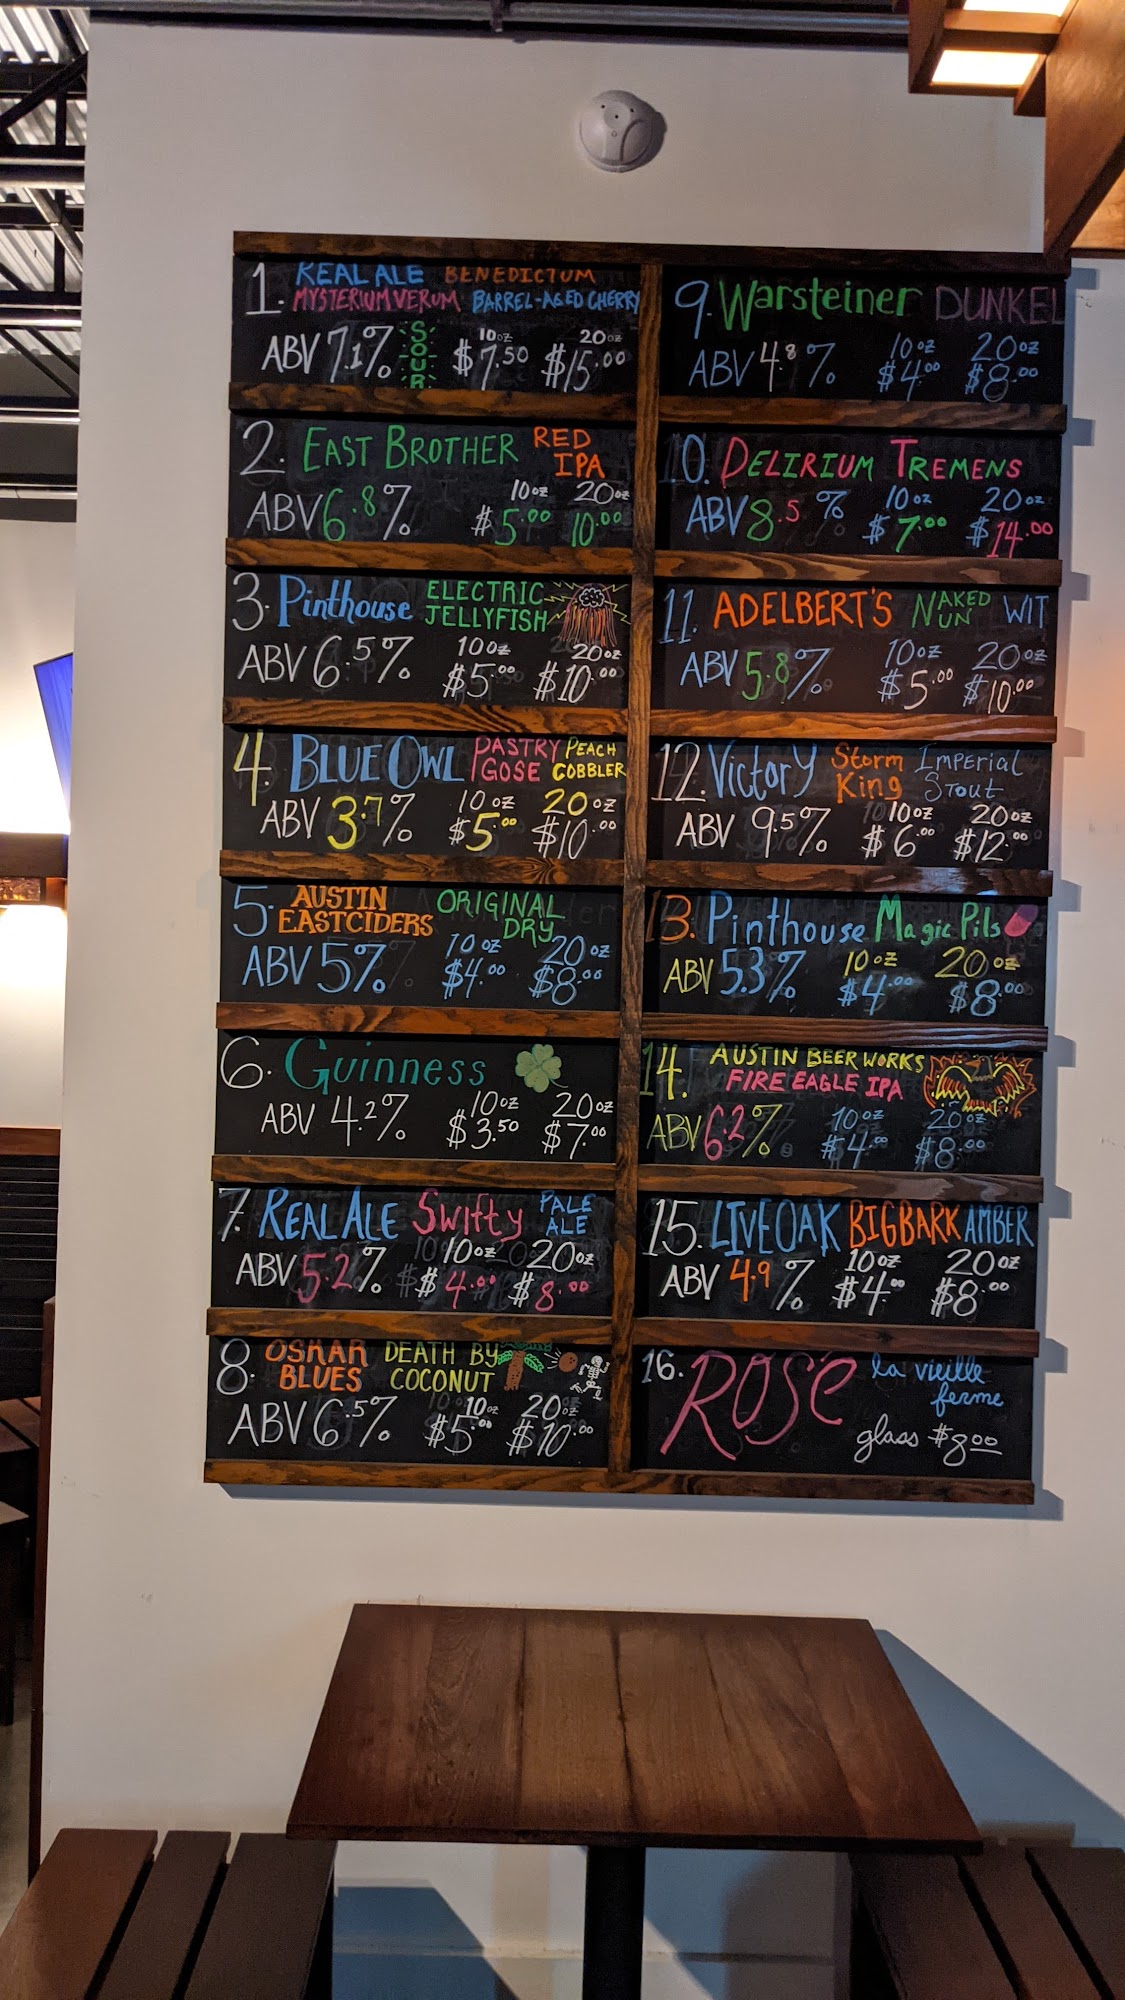 1. REAL ALE BENEDICTUM
MYSTERIUM VERUM BARREL-AGED CHERRY
SOUR
10oz 20oz
ABV 7.1% $7.50 $15.00
2. EAST BROTHER RED IPA
10oz 20oz
ABV 6.8% $5.00 10.00
3. Pinthouse ELECTRIC JELLYFISH
10oz 20oz
ABV 6.5% $5.00 $10.00
4. BLUE OWL PASTRY GOSE PEACH COBBLER
10oz 20oz
ABV 3.7% $5.00 $10.00
5. AUSTIN EASTCIDERS ORIGINAL DRY
10oz 20oz
ABV 5% $4.00 $8.00
6. Guinness
10oz 20oz
ABV 4.2% $3.50 $7.00
7. REAL ALE Swifty PALE ALE
10oz 20oz
ABV 5.2% $4.00 $8.00
8. OSKAR BLUES DEATH BY COCONUT
10oz 20oz
ABV 6.5% $5.00 $10.00
9. Warsteiner DUNKEL
10oz 20oz
ABV 4.8% $4.00 $8.00
10. DELIRIUM TREMENS
10oz 20oz
ABV 8.5% $7.00 $14.00
11. ADELBERT'S NAKED NUN WIT
10oz 20oz
ABV 5.8% $5.00 $10.00
12. Victory Storm King Imperial Stout
10oz 20oz
ABV 9.5% $6.00 $12.00
13. Pinthouse Magic Pils
10oz 20oz
ABV 5.3% $4.00 $8.00
14. AUSTIN BEER WORKS
FIRE EAGLE IPA
10oz 20oz
ABV 6.2% $4.00 $8.00
15. LIVE OAK BIG BARK AMBER
10oz 20oz
ABV 4.9% $4.00 $8.00
16. ROSÉ la vieille ferme
glass $8.00